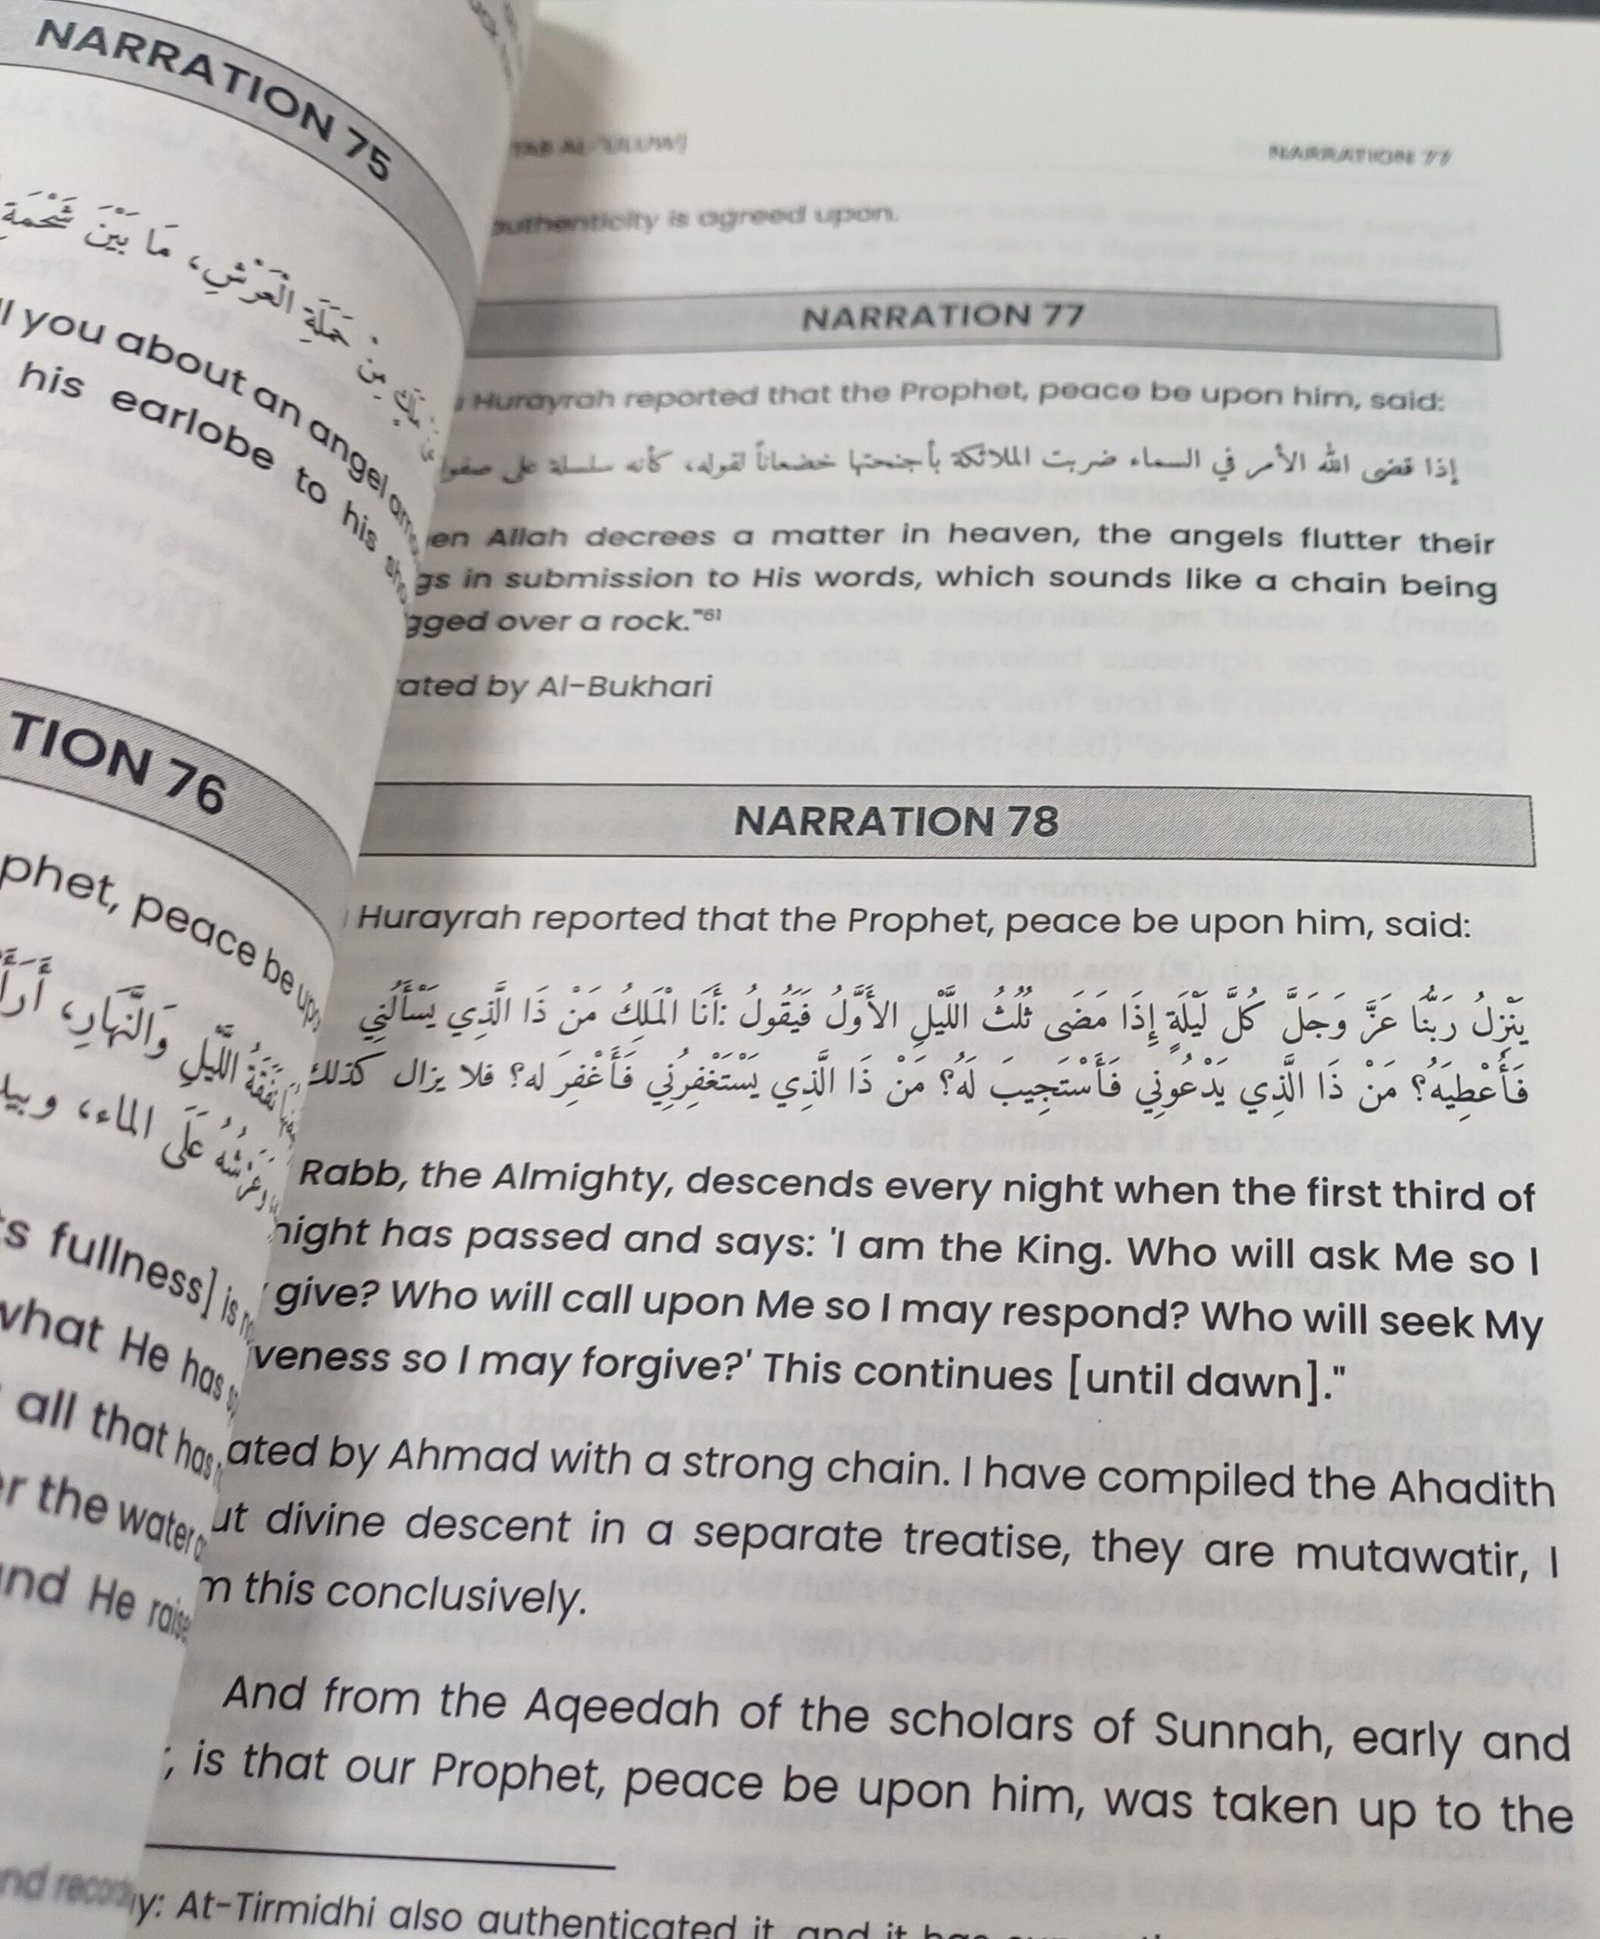 NARRATION 75
حَمَلَةِ الْعَرْشِ، مَا بَيْنَ شَحْمَةِ
you about an angel
his earlobe to his
TION 76
phet, peace be
اللَّيْلِ وَالنَّهَارِ،
عَلَى الماء، وبيد
s fullness] is
what He has
all that has
r the water
nd He raise
AL-'ULUW]
NARRATION 77
authenticity is agreed upon.
NARRATION 77
Hurayrah reported that the Prophet, peace be upon him, said:
إذا قضى الله الأمر في السماء ضربت الملائكة بأجنحتها خضعاناً لقوله، كأنه سلسلة على صفوا
en Allah decrees a matter in heaven, the angels flutter their
gs in submission to His words, which sounds like a chain being
gged over a rock."61
ated by Al-Bukhari
NARRATION 78
Hurayrah reported that the Prophet, peace be upon him, said:
يَنْزِلُ رَبُّنَا عَزَّ وَجَلَّ كُلَّ لَيْلَةٍ إِذَا مَضَى ثُلُثُ اللَّيْلِ الأَوَّلُ فَيَقُولُ :أَنَا الْمَلِكُ مَنْ ذَا الَّذِي يَسْأَلُنِي
فَأُعْطِيَهُ؟ مَنْ ذَا الَّذِي يَدْعُونِي فَأَسْتَجِيبَ لَهُ؟ مَنْ ذَا الَّذِي يَسْتَغْفِرُنِي فَأَغْفِرَ له؟ فلا يزال كذلك
Rabb, the Almighty, descends every night when the first third of
night has passed and says: 'I am the King. Who will ask Me so I
give? Who will call upon Me so I may respond? Who will seek My
veness so I may forgive?' This continues [until dawn]."
ated by Ahmad with a strong chain. I have compiled the Ahadith
ut divine descent in a separate treatise, they are mutawatir, I
m this conclusively.
And from the Aqeedah of the scholars of Sunnah, early and
, is that our Prophet, peace be upon him, was taken up to the
y: At-Tirmidhi also authenticated it, and it has